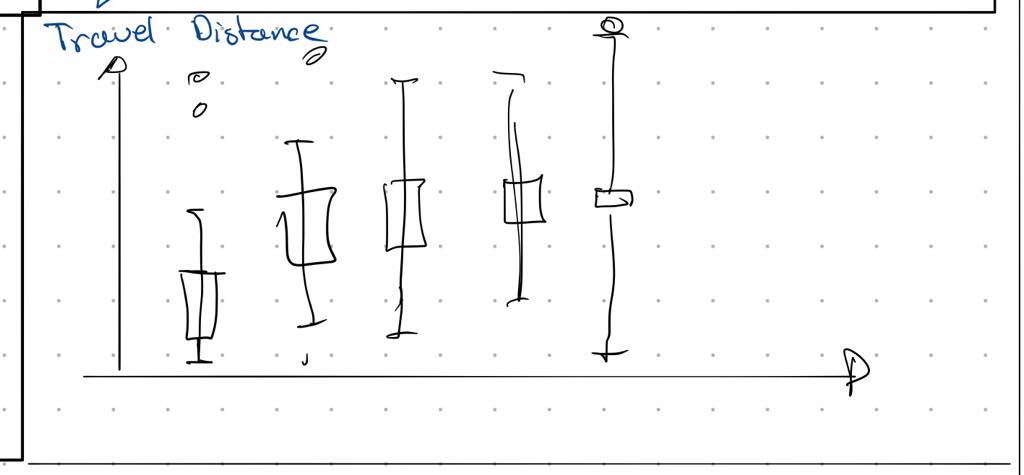 Travel Distance